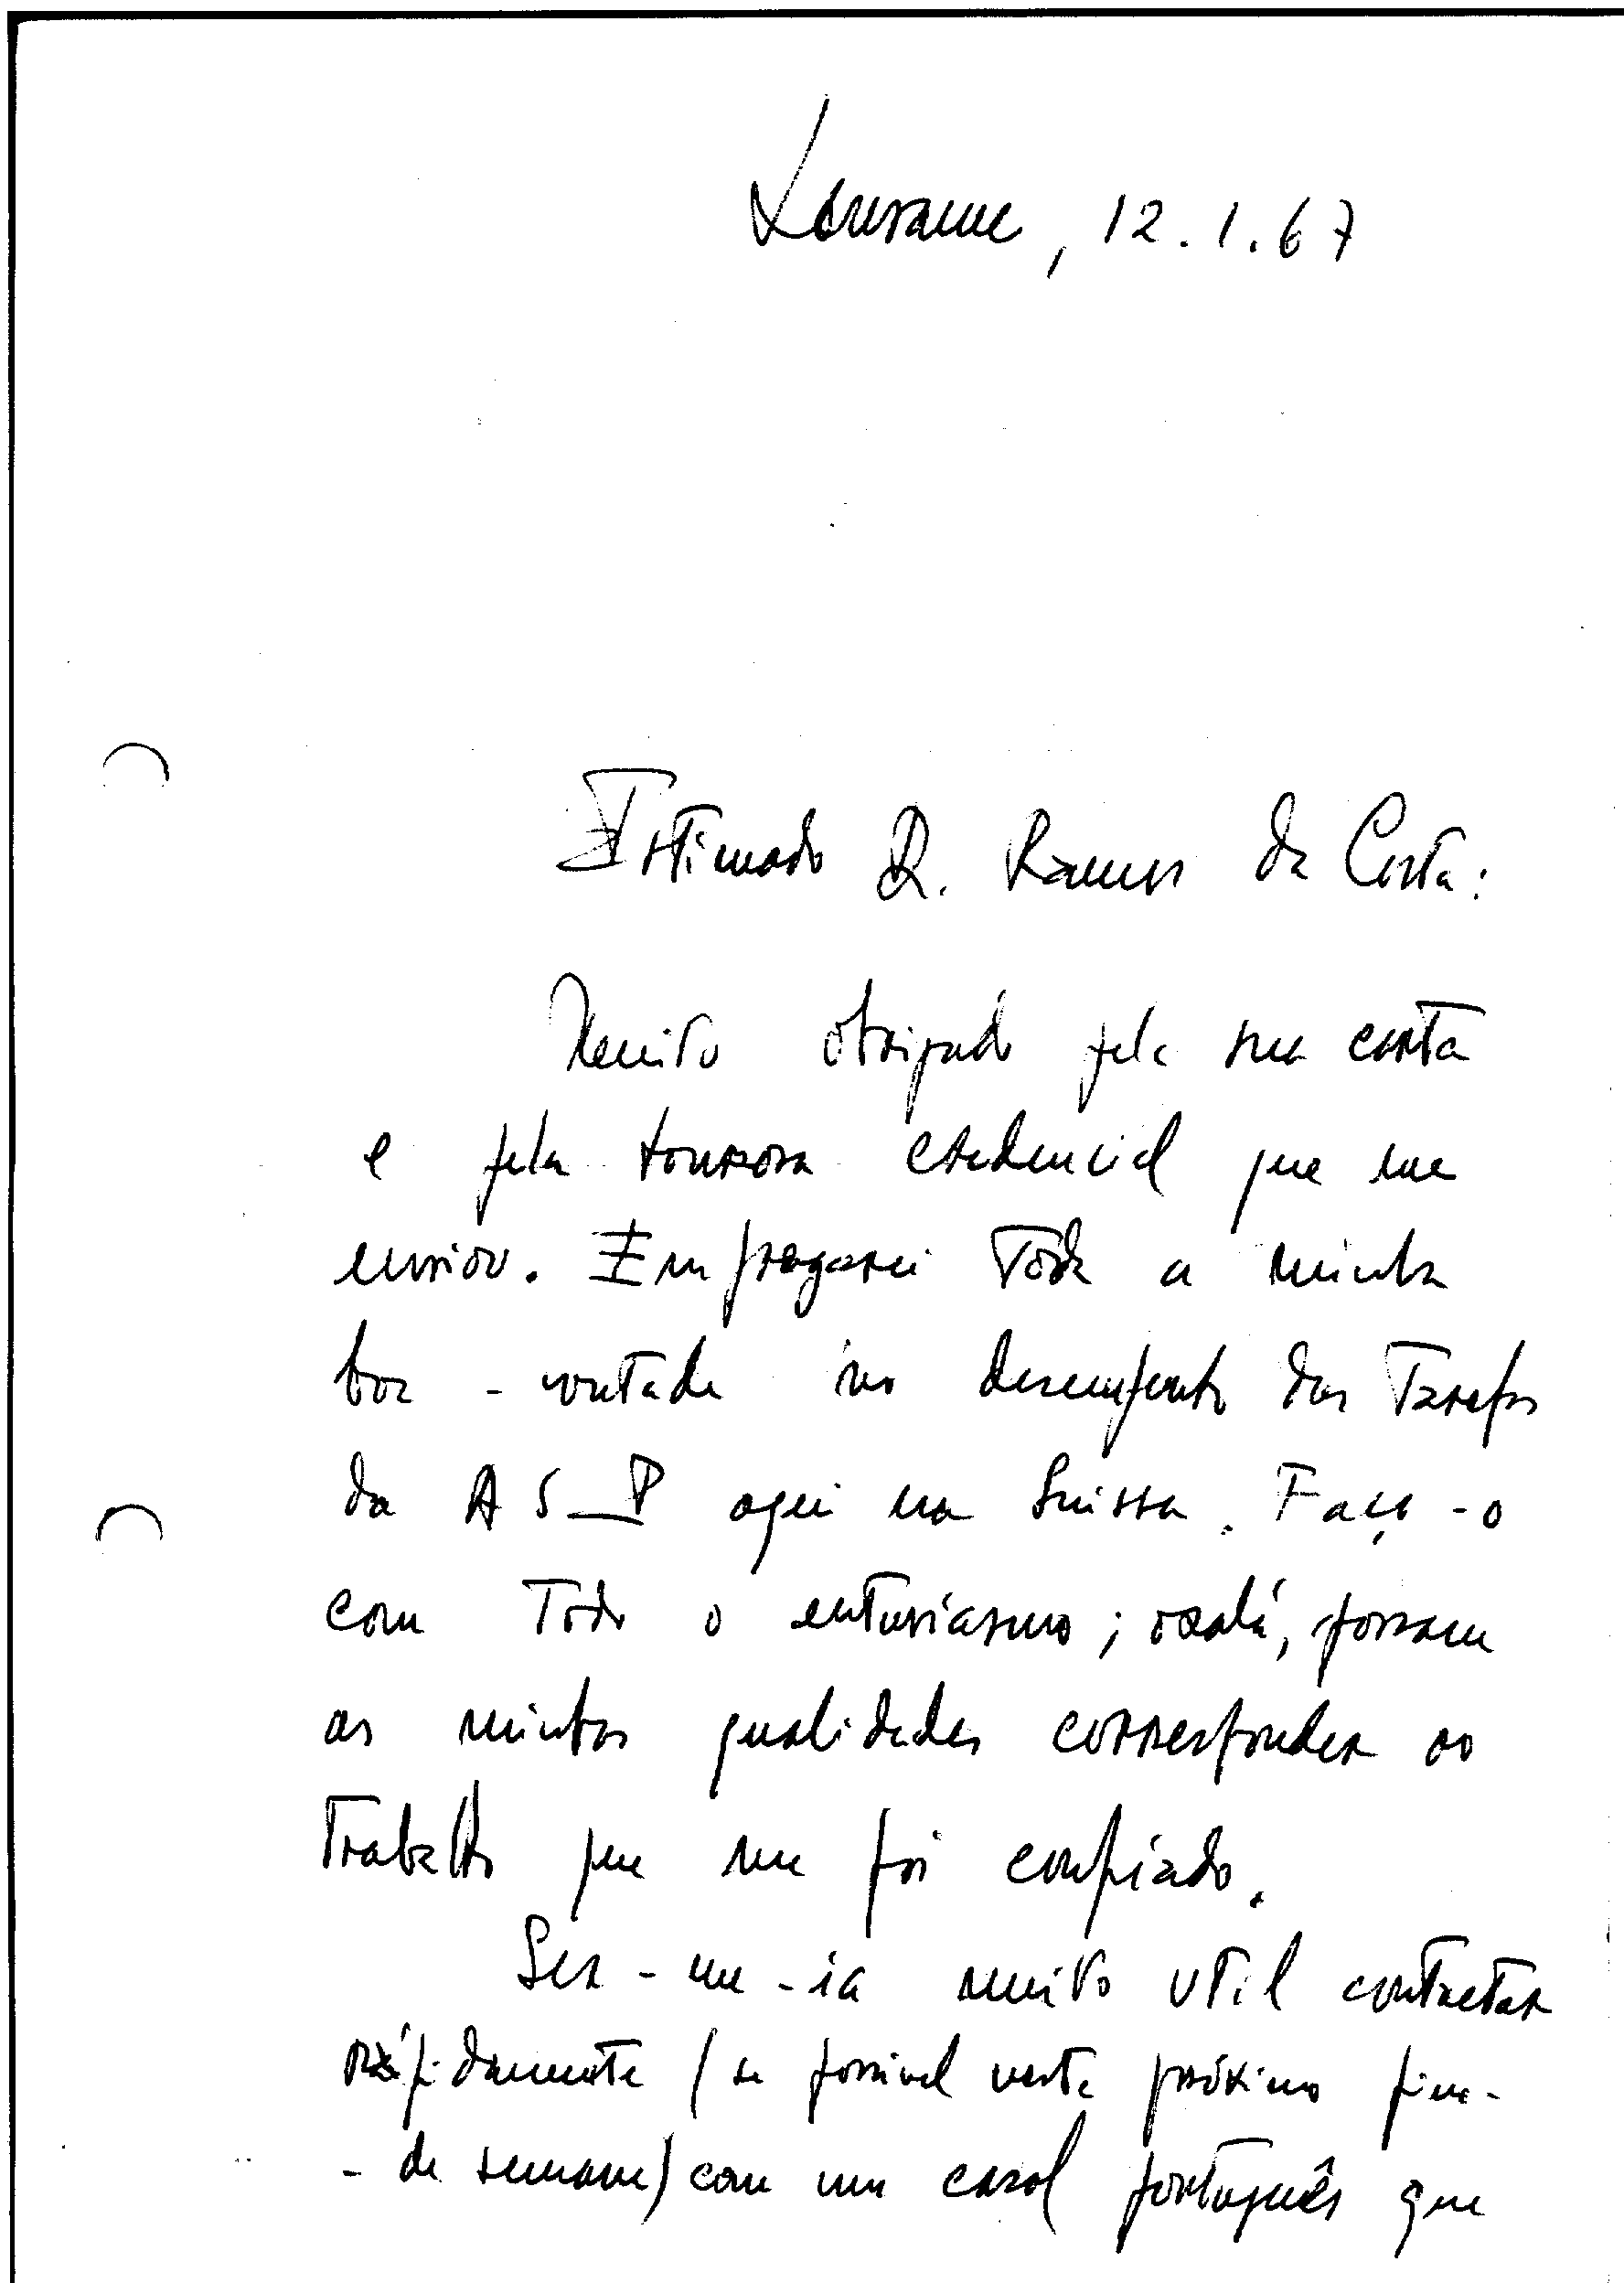 Lausanne, 12.1.67
Estimado D. Ramos da Costa:
Muito obrigado pela sua carta
e pela honrosa credencial que me
enviou. Empregarei toda a minha
boa-vontade no desempenho das tarefas
da ASP aqui na Suissa. Faço-o
com todo o entusiasmo; oxalá, possam
as minhas qualidades corresponder ao
trabalho que me foi confiado.
Ser-me-ia muito util contactar
rápidamente (se possivel neste próximo fim-
-de semana) com um casal português que